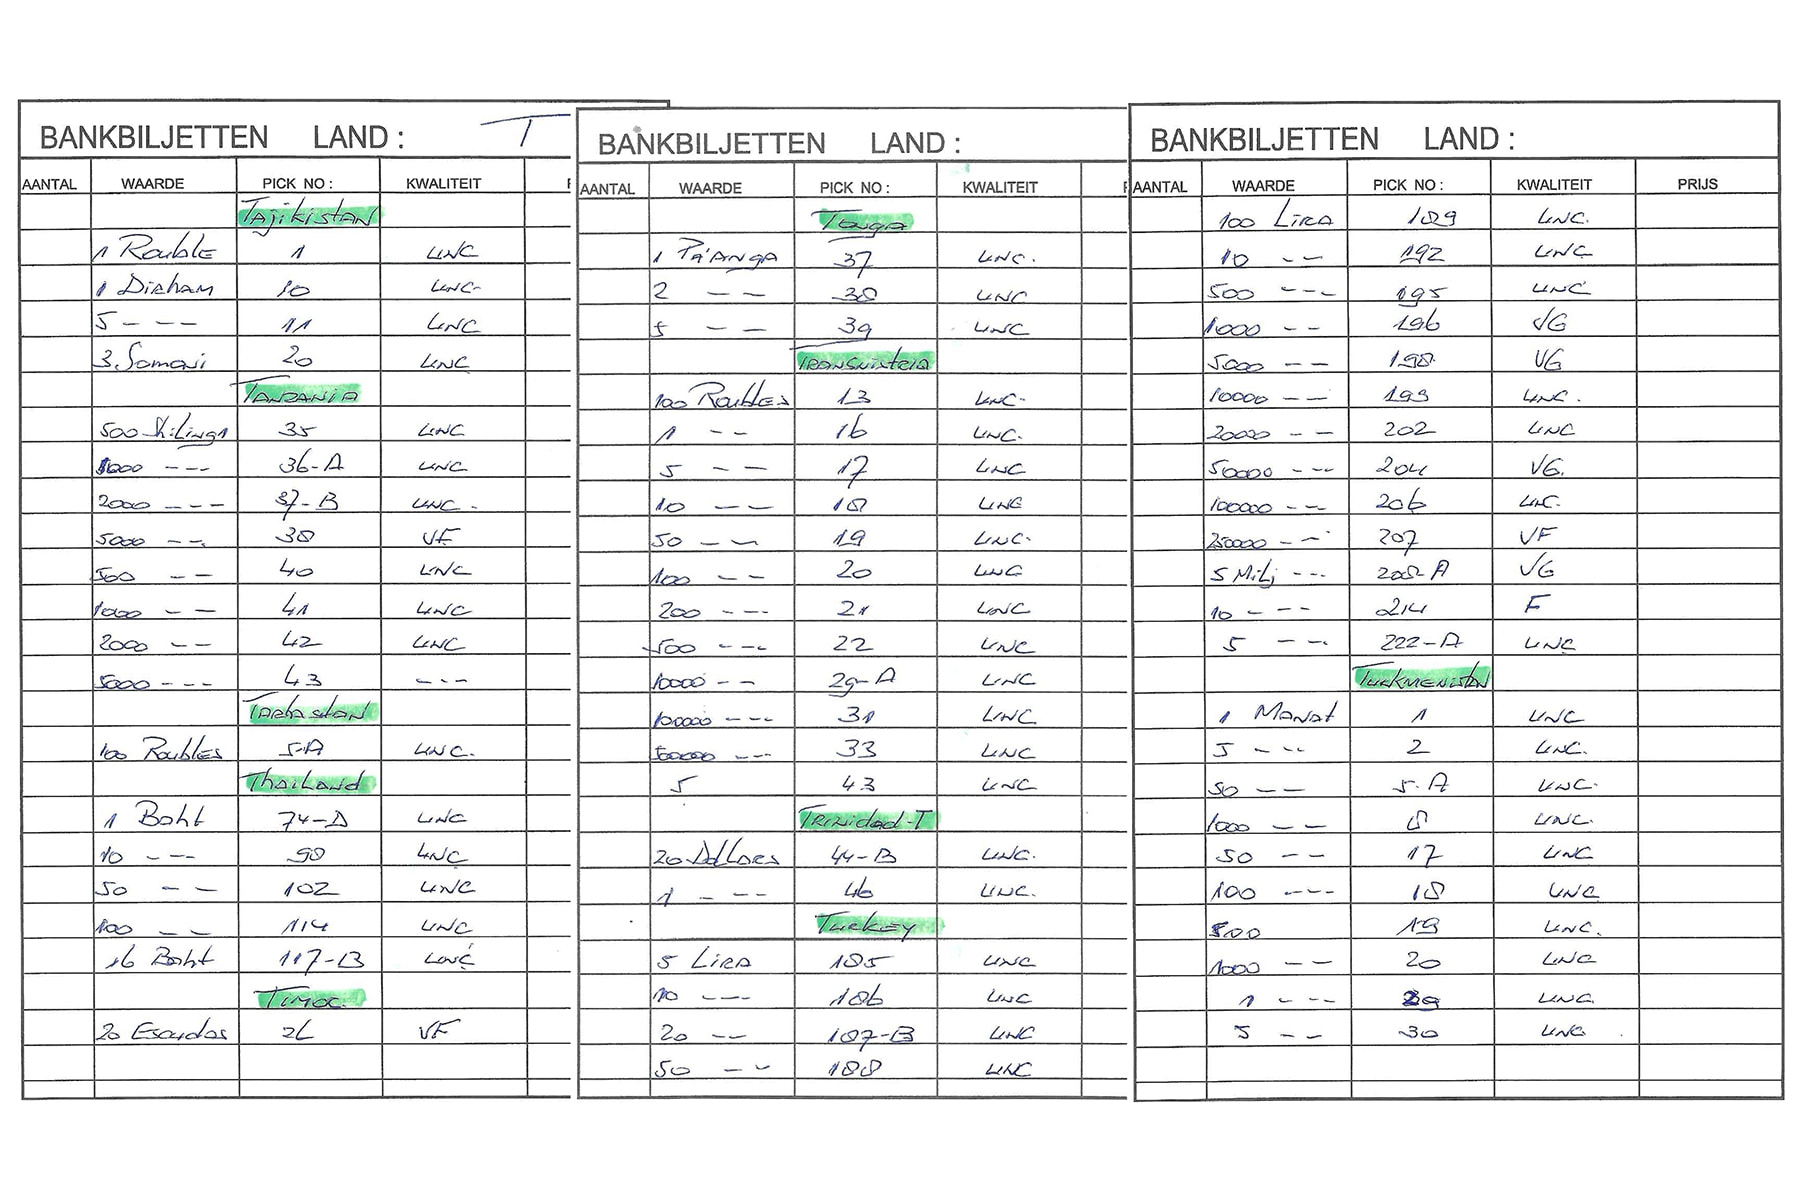 BANKBILJETTEN LAND : T
AANTAL WAARDE PICK NO : KWALITEIT
Tajikistan
1 Rouble 1 UNC
1 Dirham 10 UNC
5 - - - 11 UNC
3. Somoni 20 UNC
Tanzania
500 Shilingi 35 UNC
1000 - - - 36-A UNC
2000 - - - 37-B UNC.
5000 - - 38 VF
500 - - 40 UNC
1000 - - 41 UNC
2000 - - 42 UNC
5000 - - - 43 - - -
Tartastan
100 Roubles 5-A UNC.
Thailand
1 Baht 74-D UNC
10 - - - 98 UNC
50 - - 102 UNC
100 - - 114 UNC
16 Baht 117-B UNC
Timor
20 Escudos 26 VF
BANKBILJETTEN LAND :
AANTAL WAARDE PICK NO : KWALITEIT
Tonga
1 Pa'anga 37 UNC.
2 - - 38 UNC
5 - - 39 UNC
Transnistria
100 Roubles 13 UNC
1 - - 16 UNC.
5 - - 17 UNC
10 - - 18 UNC
50 - - 19 UNC.
100 - - 20 UNC
200 - - - 21 UNC
500 - - - 22 UNC
10000 - - 29-A UNC
100000 - - - 31 UNC
500000 - - - 33 UNC
5 43 UNC
Trinidad-T
20 Dollars 44-B UNC.
1 - - - 46 UNC.
Turkey
5 Lira 185 UNC
10 - - - 186 UNC
20 - - 187-B UNC
50 - - 188 UNC
BANKBILJETTEN LAND :
AANTAL WAARDE PICK NO : KWALITEIT PRIJS
100 Lira 189 UNC.
10 - - 192 UNC
500 - - - 195 UNC
1000 - - 196 VG
5000 - - 198 VG
10000 - - 199 UNC.
20000 - - 202 UNC
50000 - - - 204 VG.
100000 - - - 206 UNC.
250000 - - 207 VF
5 Milj - - - 208-A VG
10 - - - 214 F
5 - - - 222-A UNC
Turkmenistan
1 Manat 1 UNC
5 - - - 2 UNC.
50 - - 5-A UNC.
1000 - - 8 UNC.
50 - - 17 UNC
100 - - - 18 UNC
500 19 UNC.
1000 - - 20 UNC
1 - - - 29 UNC
5 - - 30 UNC